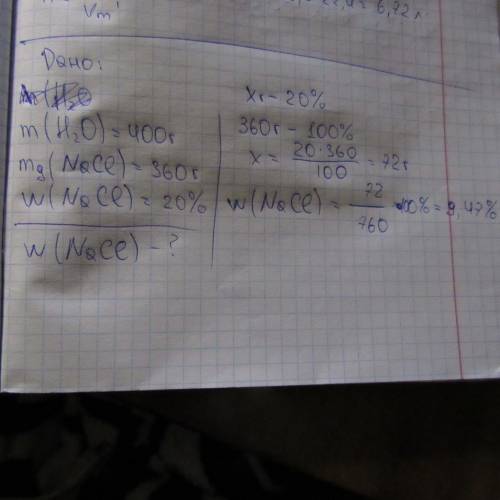 Vm
= 6,72 л
Дано:
m(H₂O) = 400г
mg(NaCl) = 360г
w(NaCl) = 20%
w(NaCl) - ?
xг - 20%
360г - 100%
x = 20·360 / 100 = 72г
w(NaCl) = 72 / 760 · 100% = 9,47%